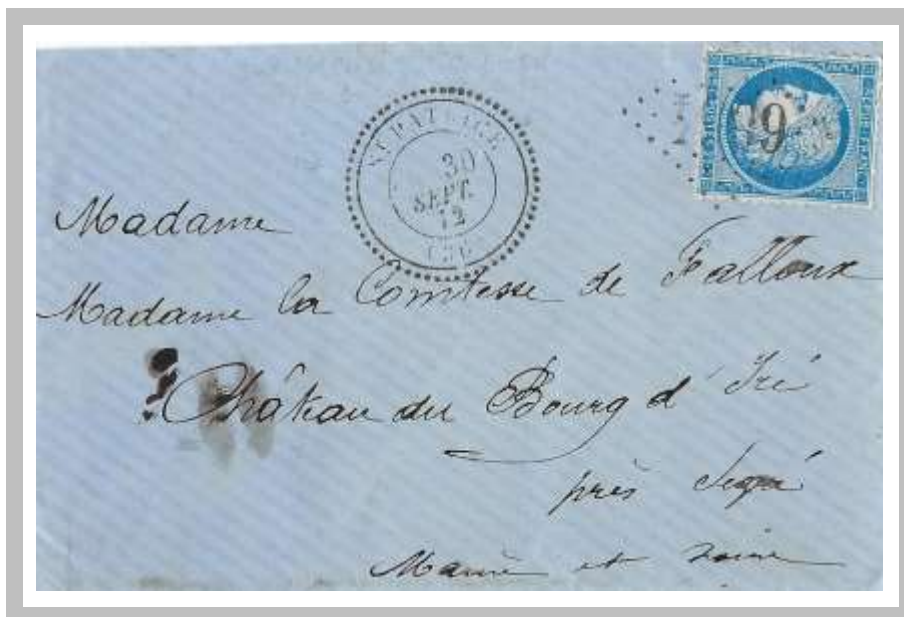 30
SEPT.
72
Madame
Madame la Comtesse de Falloux
Château du Bourg d'Iré
près Segré
Maine et Loire